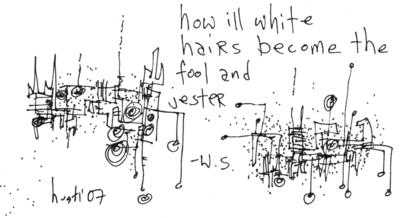 how ill white
hairs become the
fool and
jester
-W.S
hugh '07